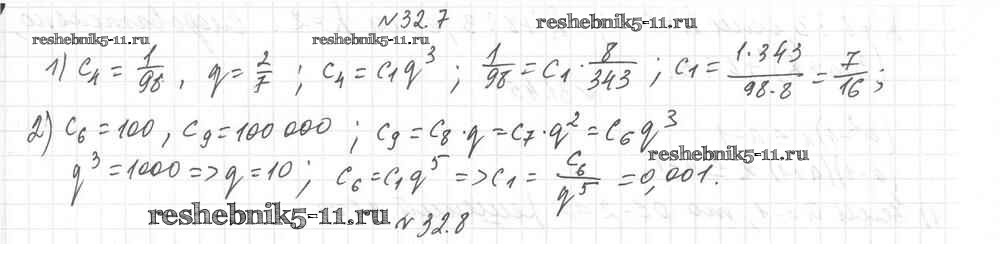 №32.7
reshebnik5-11.ru
reshebnik5-11.ru reshebnik5-11.ru
1) c₄ = 1/98, q = 2/7; c₄ = c₁q³; 1/98 = c₁ · 8/343; c₁ = 1·343/98·8 = 7/16;
2) c₆ = 100, c₉ = 100 000; c₉ = c₈·q = c₇·q² = c₆q³
reshebnik5-11.ru
q³ = 1000 => q = 10; c₆ = c₁q⁵ => c₁ = c₆/q⁵ = 0,001.
reshebnik5-11.ru
№32.8